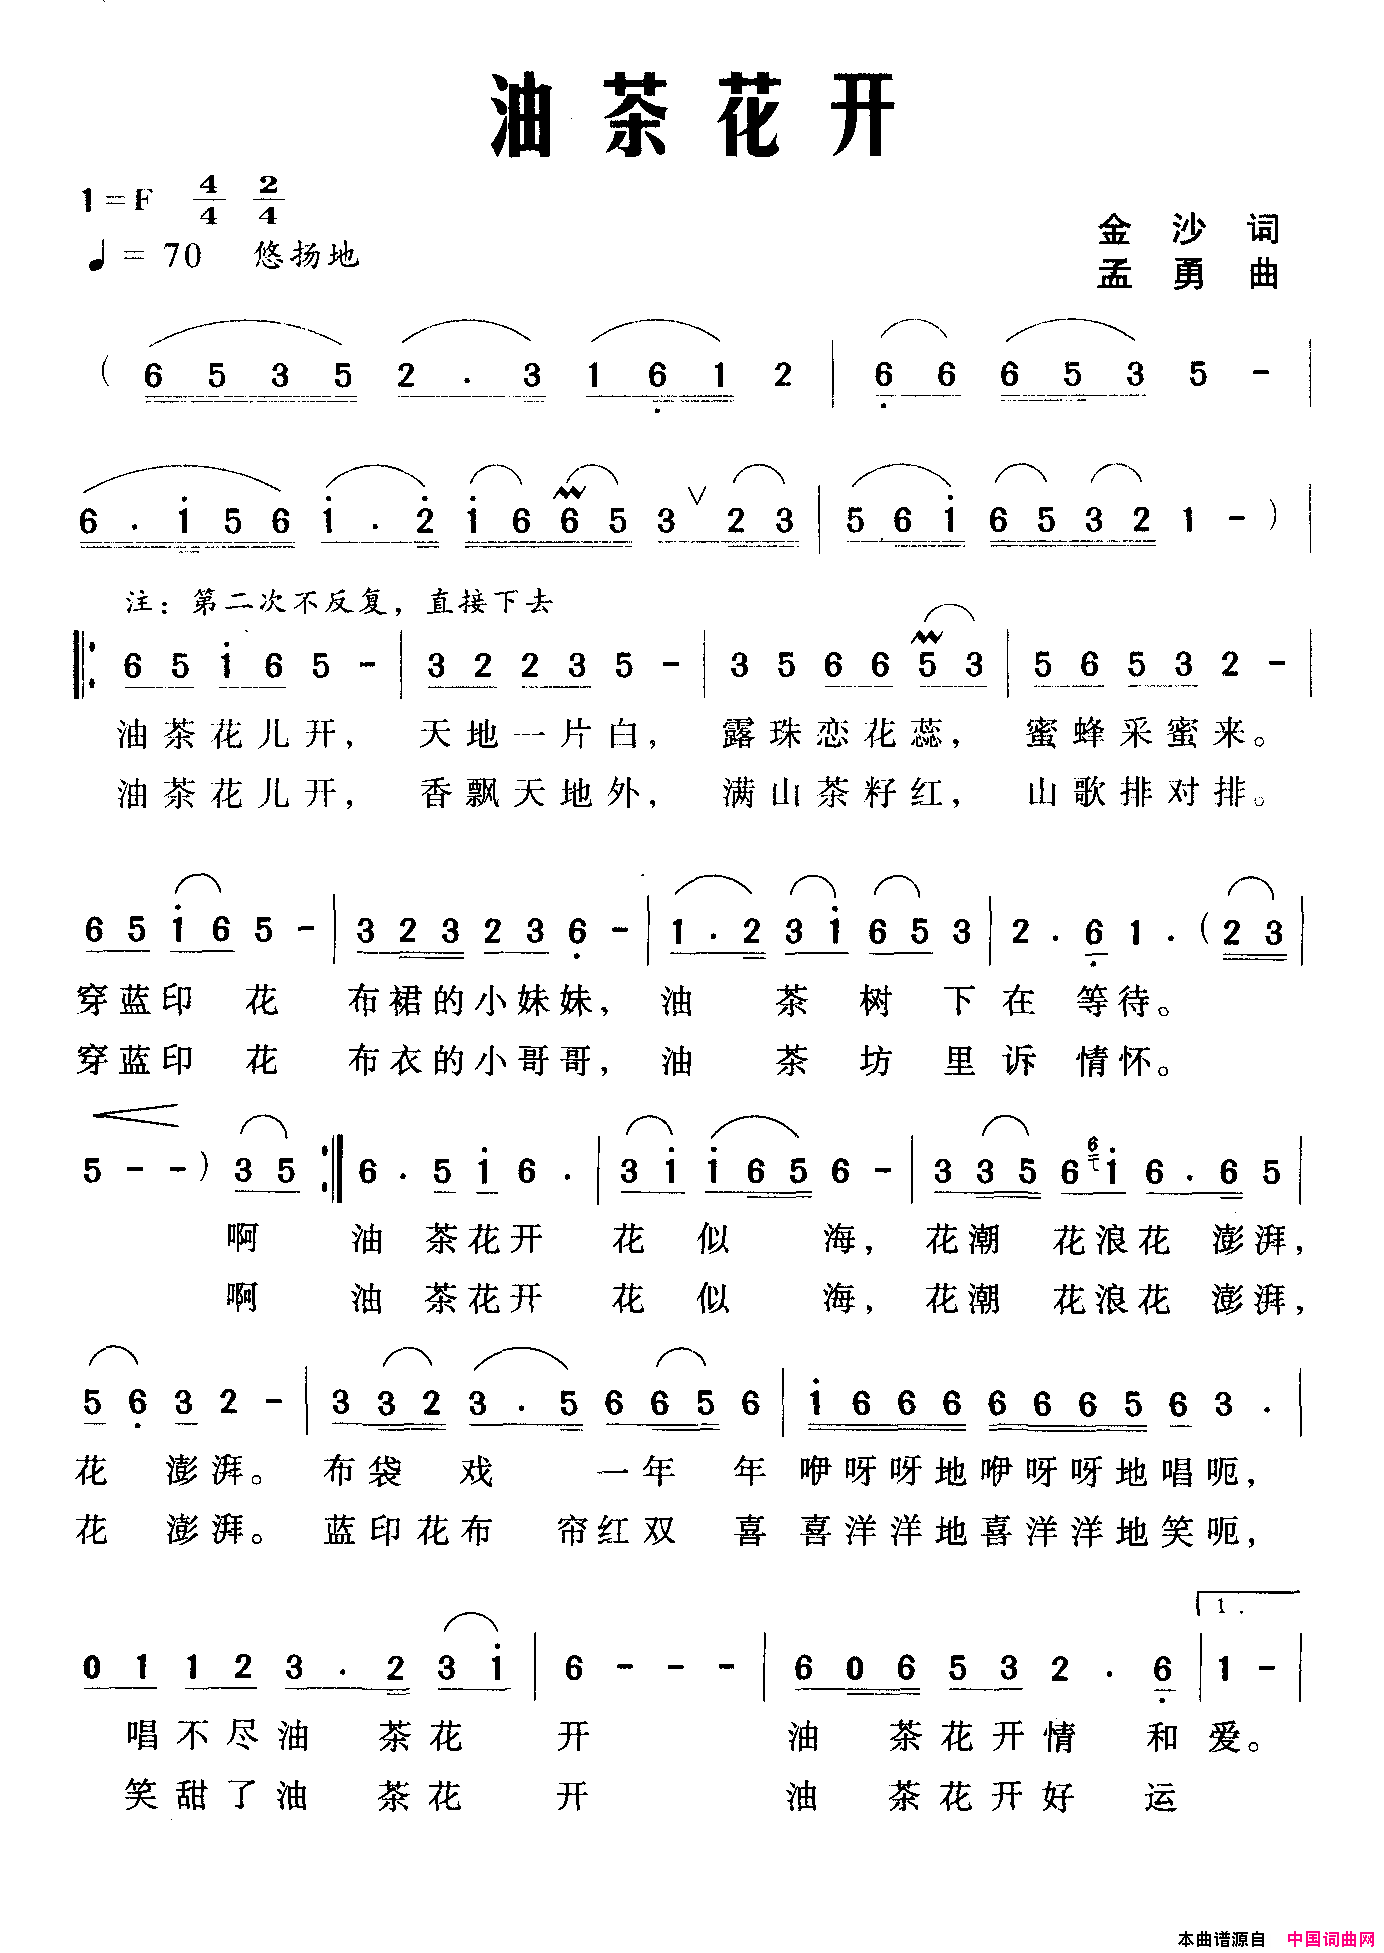 油茶花开
1=F 4/4 2/4
♩= 70 悠扬地
金沙词
孟勇曲
( 6 5 3 5 2 . 3 1 6 1 2 | 6 6 6 5 3 5 - |
6 . i 5 6 i . 2 i 6 6 5 3 ∨ 2 3 | 5 6 i 6 5 3 2 1 - ) |
注：第二次不反复，直接下去
6 5 i 6 5 - | 3 2 2 3 5 - | 3 5 6 6 5 3 | 5 6 5 3 2 - |
油茶花儿开， 天地一片白， 露珠恋花蕊， 蜜蜂采蜜来。
油茶花儿开， 香飘天地外， 满山茶籽红， 山歌排对排。
6 5 i 6 5 - | 3 2 3 2 3 6 - | 1 . 2 3 i 6 5 3 | 2 . 6 1 . ( 2 3 |
穿蓝印 花 布裙的小妹妹， 油 茶 树 下在 等待。
穿蓝印 花 布衣的小哥哥， 油 茶 坊 里诉 情怀。
5 - - ) 3 5 :| 6 . 5 i 6 . | 3 i i 6 5 6 - | 3 3 5 6 6 i 6 . 6 5 |
啊 油 茶花开 花 似 海， 花潮 花浪花 澎湃，
啊 油 茶花开 花 似 海， 花潮 花浪花 澎湃，
5 6 3 2 - | 3 3 2 3 . 5 6 6 5 6 | i 6 6 6 6 6 6 5 6 3 . |
花 澎湃。 布袋 戏 一年 年 咿呀呀地咿呀呀地唱呃，
花 澎湃。 蓝印花布 帘红双 喜 喜洋洋地喜洋洋地笑呃，
1 .
0 1 1 2 3 . 2 3 i | 6 - - - | 6 0 6 5 3 2 . 6 | 1 - |
唱不尽油 茶花 开 油 茶花开情 和 爱。
笑甜了油 茶花 开 油 茶花开好 运
本曲谱源自 中国词曲网